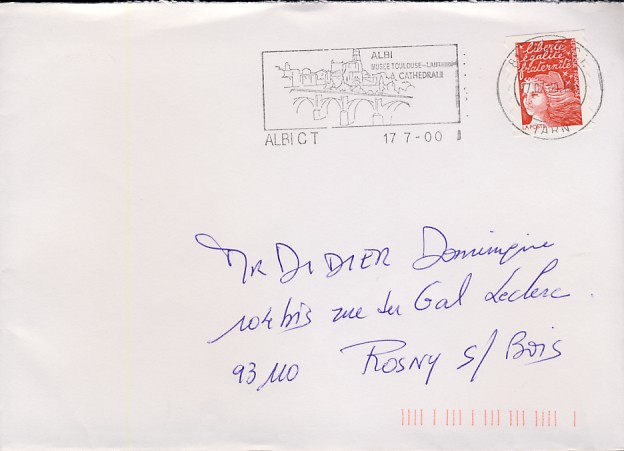 ALBI
MUSEE TOULOUSE-LAUTREC
LA CATHEDRALE
ALBI CT 17 7-00
Liberté
égalité
fraternité
LA POSTE
TARN
Mr DIDIER Dominique
104 bis rue du Gal Leclerc
93110 ROSNY s/ Bois